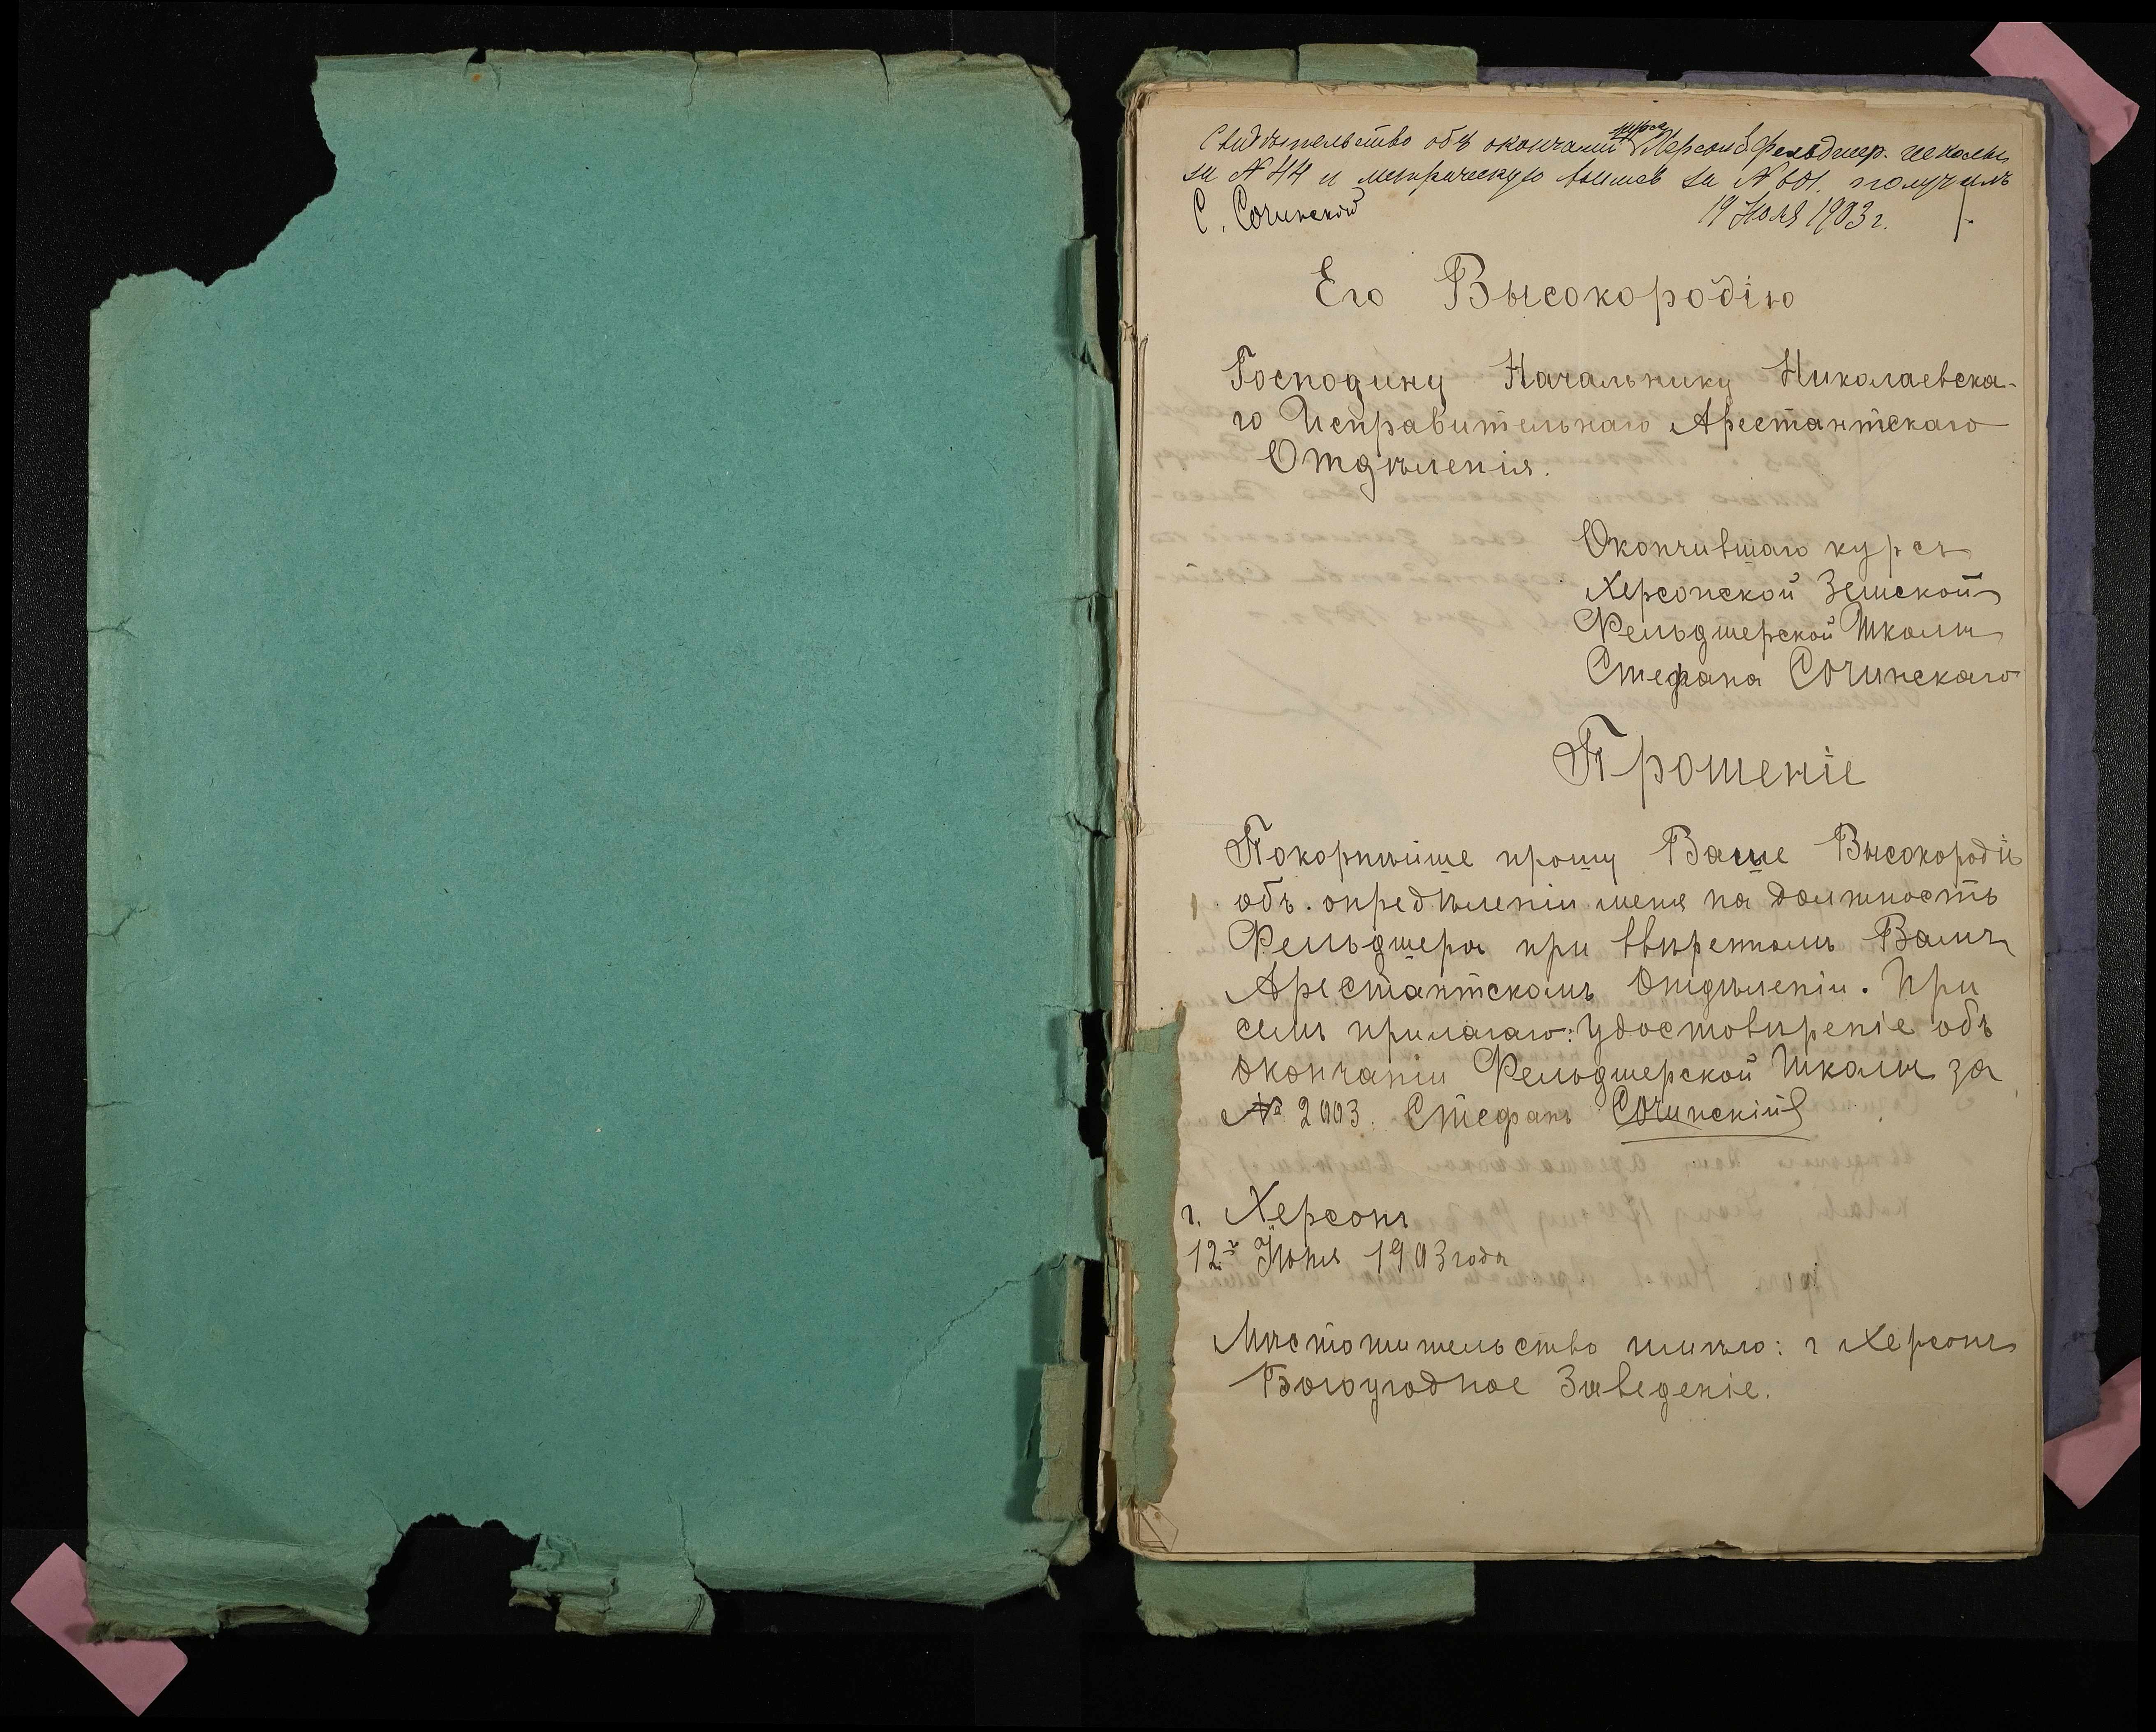 Свидѣтельство объ окончаніи курса Херсон. Фельдшер. школы
за № 44 и метрическую выпись за № 601. получилъ
С. Сочинскій 19 Юля 1903 г.
Его Высокородію
Господину Начальнику Николаевска-
го Исправительнаго Арестантскаго
Отдѣленія.
Окончившаго курсъ
Херсонской Земской
Фельдшерской Школы
Стефана Сочинскаго
Прошеніе
Покорнѣйше прошу Ваше Высокородіе
объ опредѣленіи меня на должность
Фельдшера при ввѣренномъ Вамъ
Арестантскомъ Отдѣленіи. При
семъ прилагаю: удостовѣреніе объ
окончаніи Фельдшерской Школы за
№ 2003. Стефанъ Сочинскій
г. Херсонъ
12го Іюня 1903 года
Мѣстожительство имѣю: г Херсонъ
Богоугодное Заведеніе.